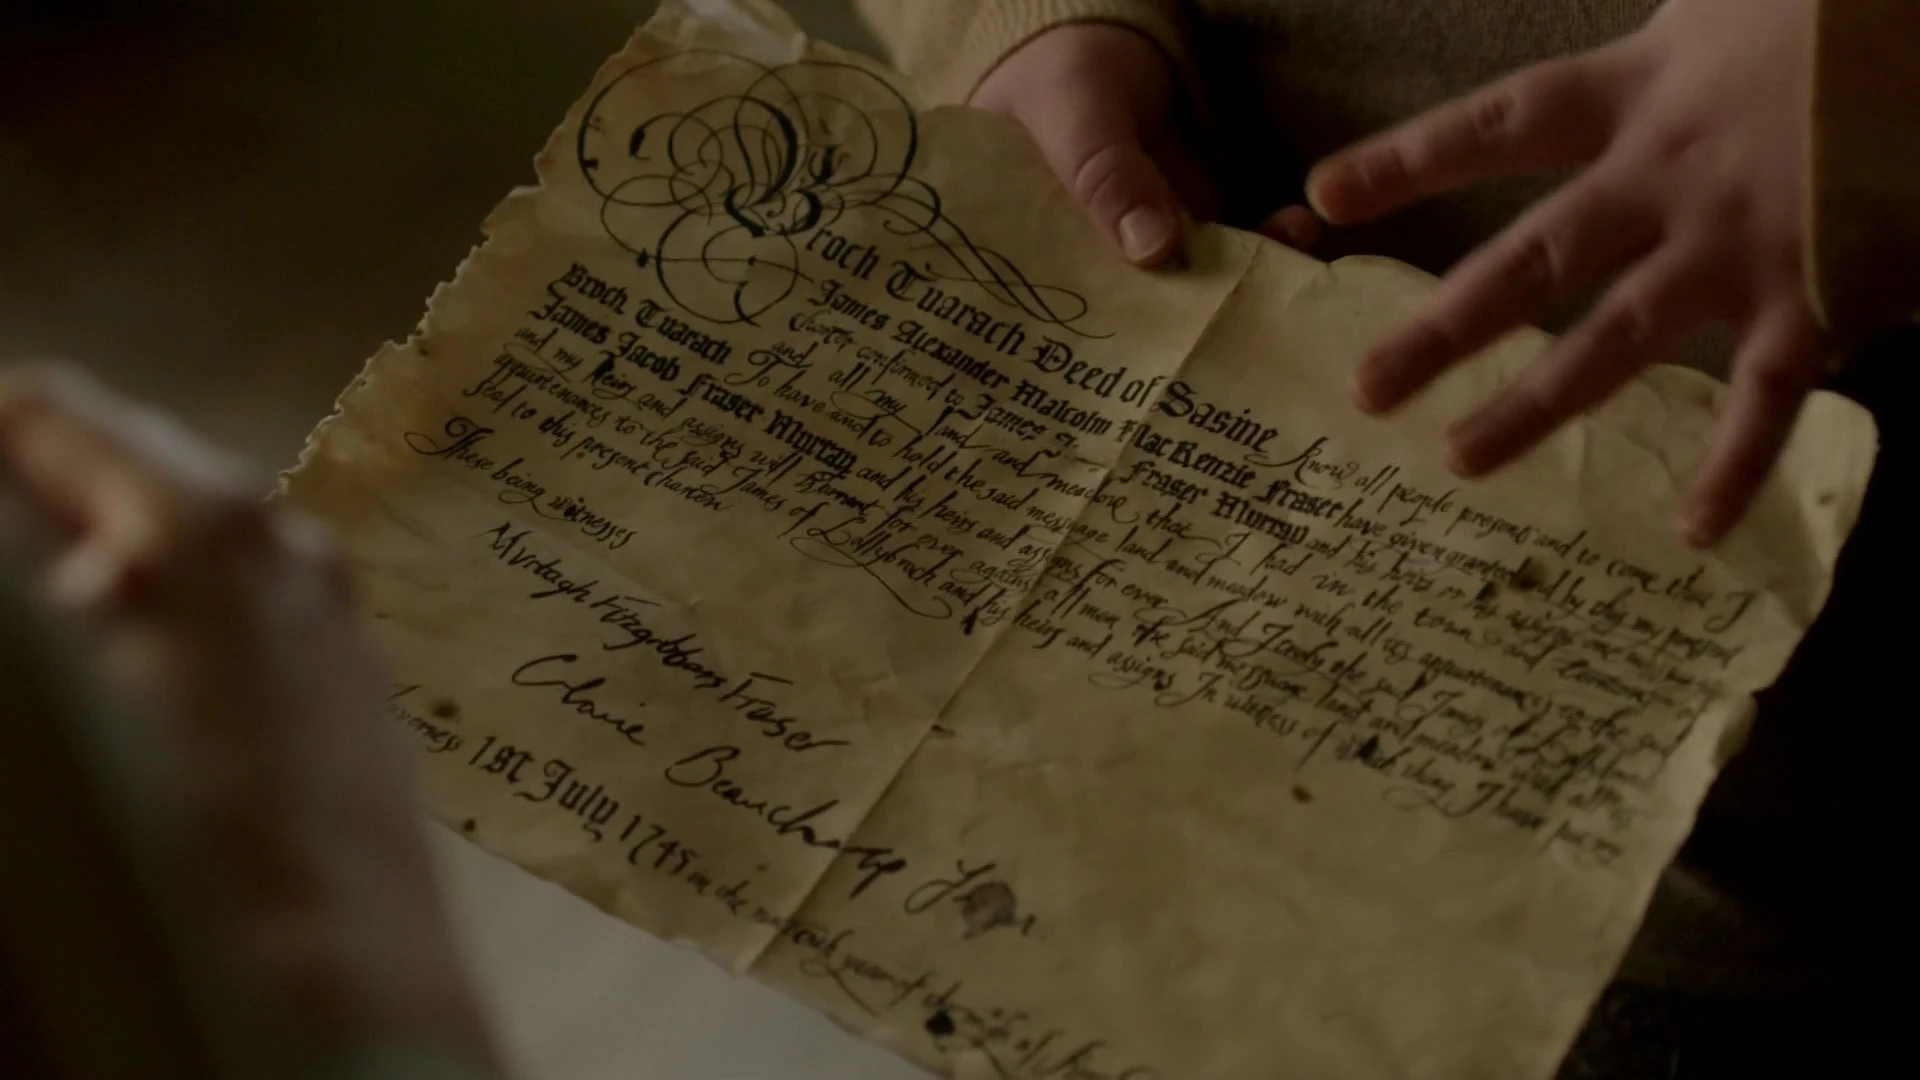 Broch Tuarach Deed of Sasine Know all people present and to come that I
James Alexander Malcolm MacKenzie Fraser have given granted and by this my present
charter confirmed to James Fraser Murray and his heirs or his assigns one
and all my land and meadow that I had in the town and
Broch Tuarach To have and to hold the said message land and meadow with all its appurtenances to the said
James Jacob Fraser Murray and his heirs and assigns for ever And I the said James of
and my heirs and assigns will for ever against all men the said message land and meadow with all its
appurtenances to the said James of Lollybroch and his heirs and assigns In witness of which thing I have put my
seal to this present charter
These being witnesses
Murtagh Fitzgibbons Fraser
Claire Beauchamp
Inverness 1st July 1745 in the year of the